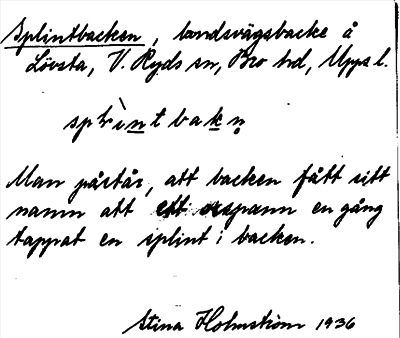 Splintbacken, landsvägsbacke å
Lövsta, V. Ryds sn, Bro hd, Upps l.
splìntbakn̥
Man påstår, att backen fått sitt
namn att ett oxspann en gång
tappat en splint i backen.
Stina Holmström 1936